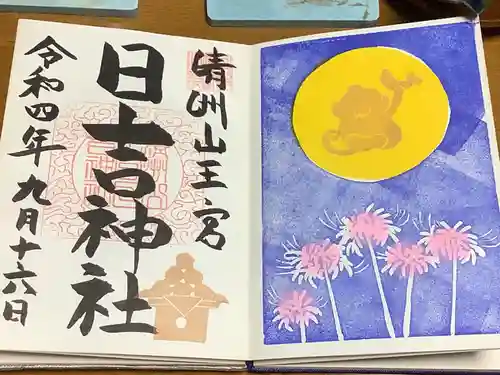 清洲山王宮
日吉神社
令和四年九月十六日